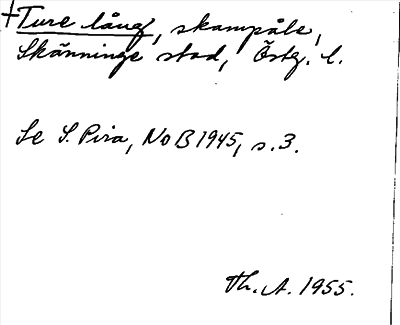 †Ture lång, skampåle,
Skänninge stad, Östg. l.
Se S. Pira, NoB 1945, s. 3.
Th. A. 1955.